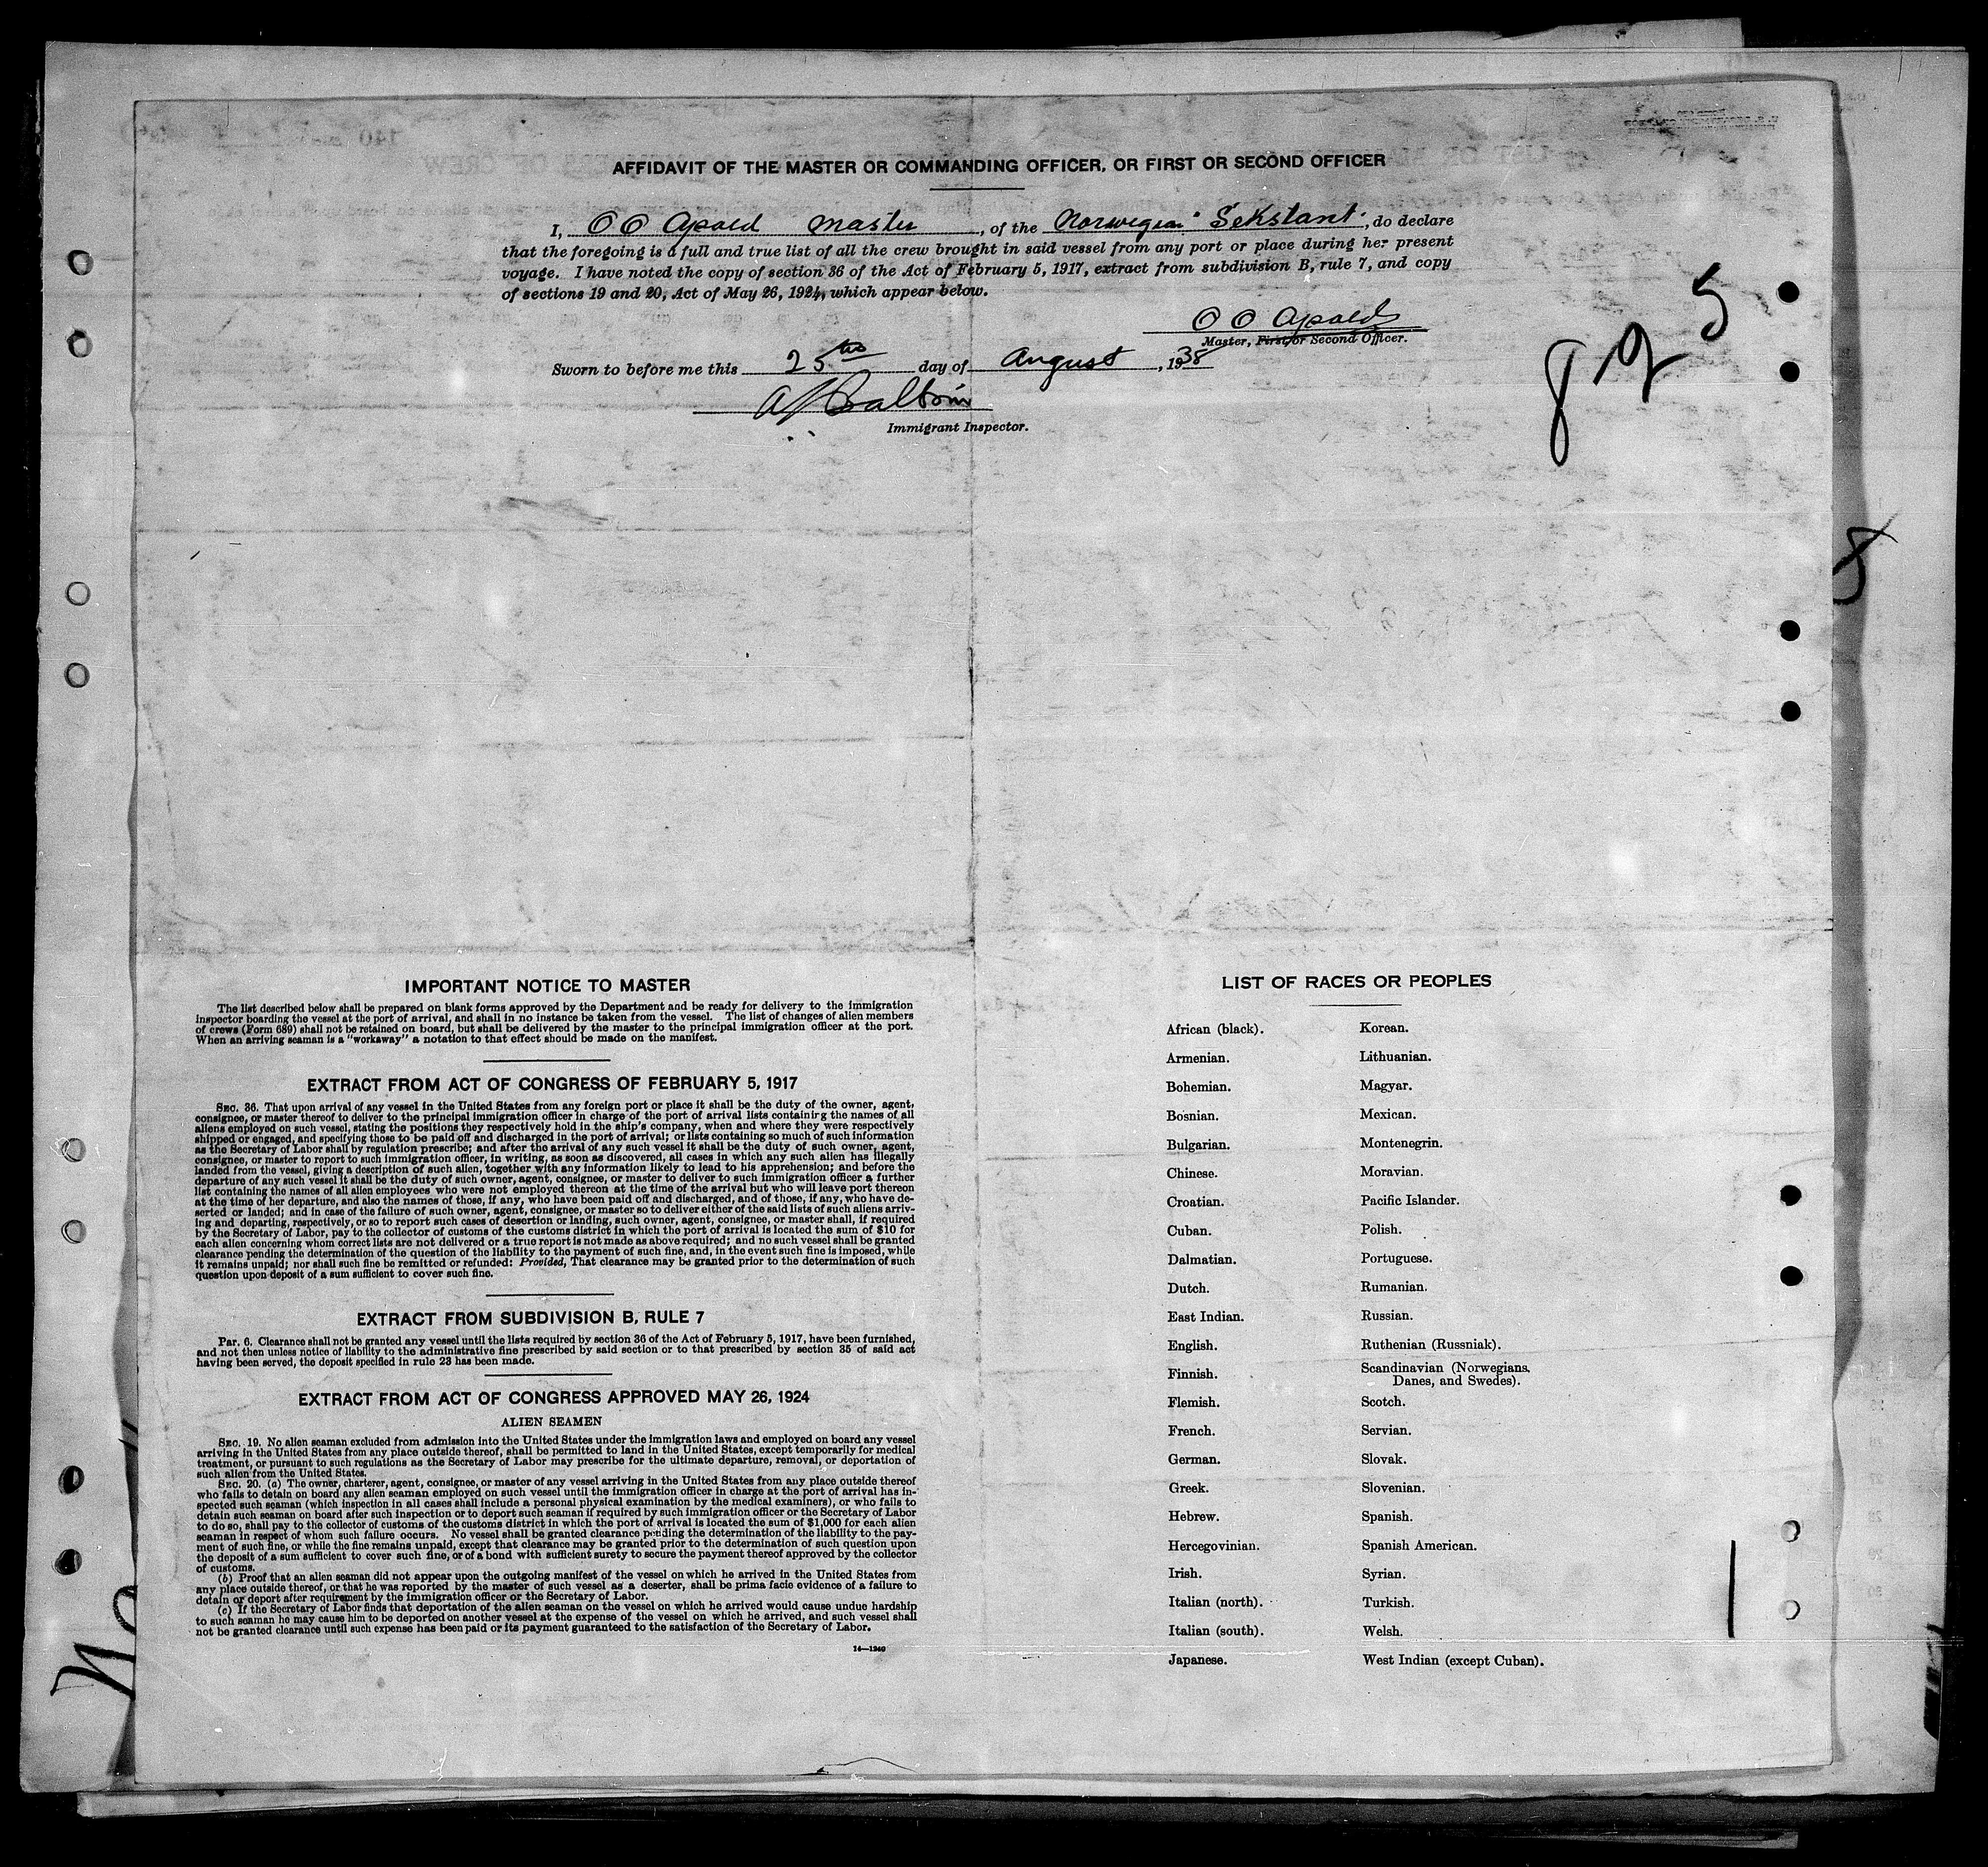 AFFIDAVIT OF THE MASTER OR COMMANDING OFFICER, OR FIRST OR SECOND OFFICER
I, O O Apold Master, of the Norwegian "Sekstant", do declare
that the foregoing is a full and true list of all the crew brought in said vessel from any port or place during her present
voyage. I have noted the copy of section 36 of the Act of February 5, 1917, extract from subdivision B, rule 7, and copy
of sections 19 and 20, Act of May 26, 1924, which appear below.
O O Apold
Master, First, or Second Officer.
Sworn to before me this 25th day of August, 1938
Immigrant Inspector.
825
8
IMPORTANT NOTICE TO MASTER
The list described below shall be prepared on blank forms approved by the Department and be ready for delivery to the immigration
inspector boarding the vessel at the port of arrival, and shall in no instance be taken from the vessel. The list of changes of alien members
of crews (Form 689) shall not be retained on board, but shall be delivered by the master to the principal immigration officer at the port.
When an arriving seaman is a "workaway" a notation to that effect should be made on the manifest.
EXTRACT FROM ACT OF CONGRESS OF FEBRUARY 5, 1917
SEC. 36. That upon arrival of any vessel in the United States from any foreign port or place it shall be the duty of the owner, agent,
consignee, or master thereof to deliver to the principal immigration officer in charge of the port of arrival lists containing the names of all
aliens employed on such vessel, stating the positions they respectively hold in the ship's company, when and where they were respectively
shipped or engaged, and specifying those to be paid off and discharged in the port of arrival; or lists containing so much of such information
as the Secretary of Labor shall by regulation prescribe; and after the arrival of any such vessel it shall be the duty of such owner, agent,
consignee, or master to report to such immigration officer, in writing, as soon as discovered, all cases in which any such alien has illegally
landed from the vessel, giving a description of such alien, together with any information likely to lead to his apprehension; and before the
departure of any such vessel it shall be the duty of such owner, agent, consignee, or master to deliver to such immigration officer a further
list containing the names of all alien employees who were not employed thereon at the time of the arrival but who will leave port thereon
at the time of her departure, and also the names of those, if any, who have been paid off and discharged, and of those, if any, who have de-
serted or landed; and in case of the failure of such owner, agent, consignee, or master so to deliver either of the said lists of such aliens arriv-
ing and departing, respectively, or so to report such cases of desertion or landing, such owner, agent, consignee, or master shall, if required
by the Secretary of Labor, pay to the collector of customs of the customs district in which the port of arrival is located the sum of $10 for
each alien concerning whom correct lists are not delivered or a true report is not made as above required; and no such vessel shall be granted
clearance pending the determination of the question of the liability to the payment of such fine, and, in the event such fine is imposed, while
it remains unpaid; nor shall such fine be remitted or refunded: Provided, That clearance may be granted prior to the determination of such
question upon deposit of a sum sufficient to cover such fine.
EXTRACT FROM SUBDIVISION B, RULE 7
Par. 6. Clearance shall not be granted any vessel until the lists required by section 36 of the Act of February 5, 1917, have been furnished,
and not then unless notice of liability to the administrative fine prescribed by said section or to that prescribed by section 35 of said act
having been served, the deposit specified in rule 23 has been made.
EXTRACT FROM ACT OF CONGRESS APPROVED MAY 26, 1924
ALIEN SEAMEN
SEC. 19. No alien seaman excluded from admission into the United States under the immigration laws and employed on board any vessel
arriving in the United States from any place outside thereof, shall be permitted to land in the United States, except temporarily for medical
treatment, or pursuant to such regulations as the Secretary of Labor may prescribe for the ultimate departure, removal, or deportation of
such alien from the United States.
SEC. 20. (a) The owner, charterer, agent, consignee, or master of any vessel arriving in the United States from any place outside thereof
who fails to detain on board any alien seaman employed on such vessel until the immigration officer in charge at the port of arrival has in-
spected such seaman (which inspection in all cases shall include a personal physical examination by the medical examiners), or who fails to
detain such seaman on board after such inspection or to deport such seaman if required by such immigration officer or the Secretary of Labor
to do so, shall pay to the collector of customs of the customs district in which the port of arrival is located the sum of $1,000 for each alien
seaman in respect of whom such failure occurs. No vessel shall be granted clearance pending the determination of the liability to the pay-
ment of such fine, or while the fine remains unpaid, except that clearance may be granted prior to the determination of such question upon
the deposit of a sum sufficient to cover such fine, or of a bond with sufficient surety to secure the payment thereof approved by the collector
of customs.
(b) Proof that an alien seaman did not appear upon the outgoing manifest of the vessel on which he arrived in the United States from
any place outside thereof, or that he was reported by the master of such vessel as a deserter, shall be prima facie evidence of a failure to
detain or deport after requirement by the immigration officer or the Secretary of Labor.
(c) If the Secretary of Labor finds that deportation of the alien seaman on the vessel on which he arrived would cause undue hardship
to such seaman he may cause him to be deported on another vessel at the expense of the vessel on which he arrived, and such vessel shall
not be granted clearance until such expense has been paid or its payment guaranteed to the satisfaction of the Secretary of Labor.
14—1240
LIST OF RACES OR PEOPLES
African (black). Korean.
Armenian. Lithuanian.
Bohemian. Magyar.
Bosnian. Mexican.
Bulgarian. Montenegrin.
Chinese. Moravian.
Croatian. Pacific Islander.
Cuban. Polish.
Dalmatian. Portuguese.
Dutch. Rumanian.
East Indian. Russian.
English. Ruthenian (Russniak).
Finnish. Scandinavian (Norwegians,
Danes, and Swedes).
Flemish. Scotch.
French. Servian.
German. Slovak.
Greek. Slovenian.
Hebrew. Spanish.
Hercegovinian. Spanish American.
Irish. Syrian.
Italian (north). Turkish.
Italian (south). Welsh.
Japanese. West Indian (except Cuban).